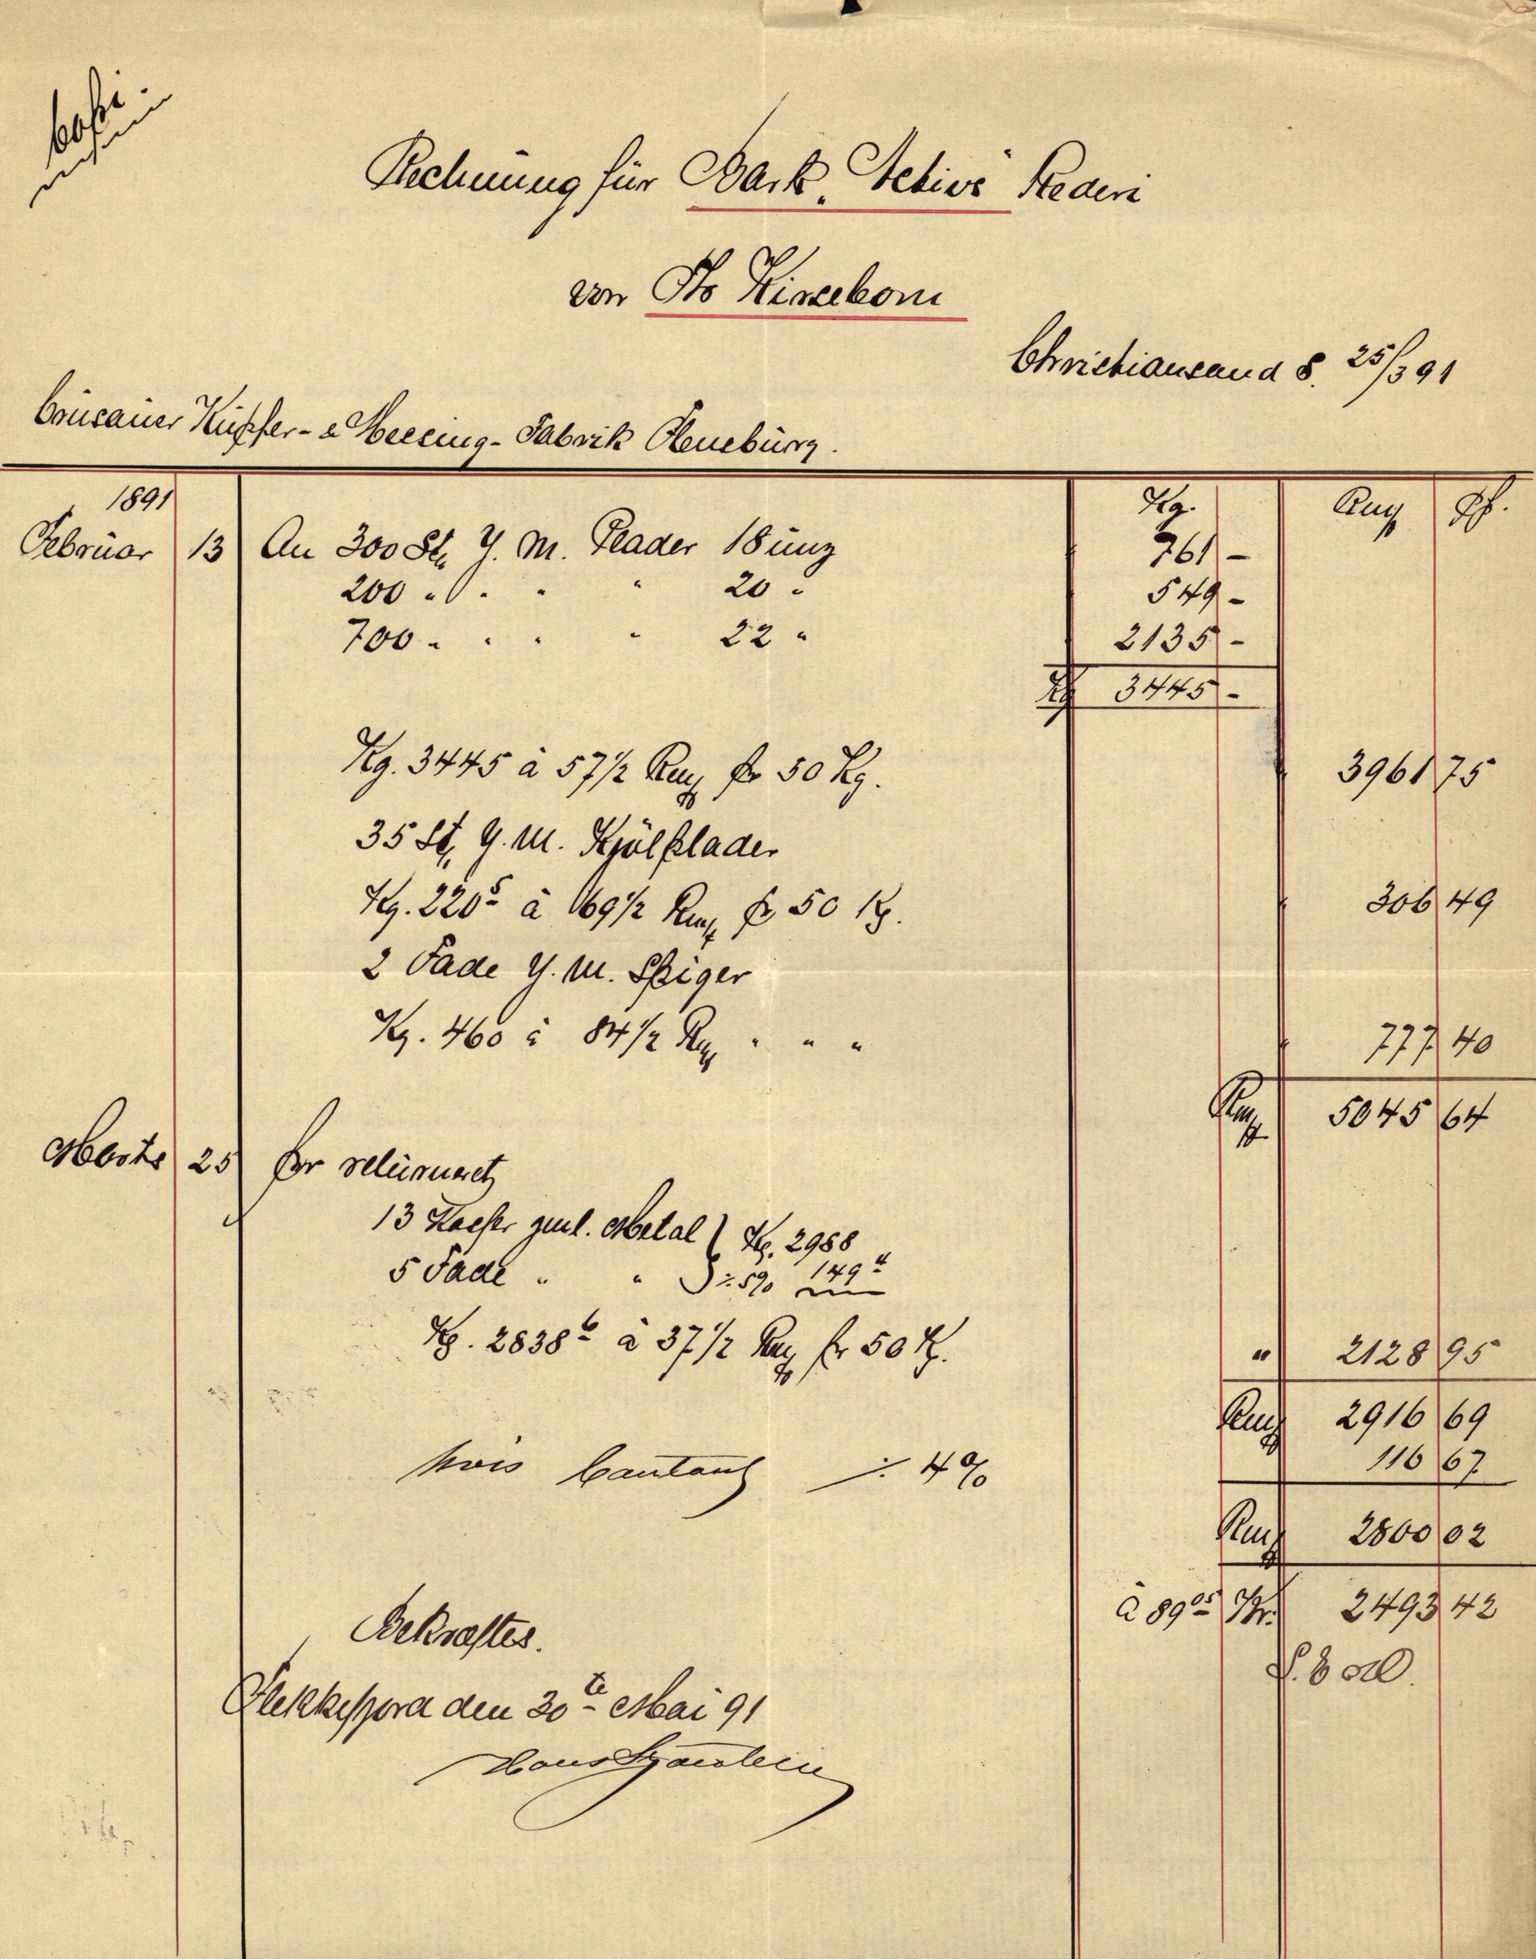 Copi.
Rechnung für Bark "Active" Rederi
von
Christiansand S. 25/3 91
Crusauer Kupfer- & Messing-Fabrik Flensburg.
1891 Kg. Rmk Pf.
Februar 13 An 300 St. Y. M. Plader 18 unz 761 -
200 " " " " 20 " 549 -
700 " " " " 22 " 2135 -
Kg 3445 -
Kg. 3445 à 57 1/2 Rmk pr 50 Kg. 3961 75
35 St. Y. M. Kjölplader
Kg. 220 5 à 69 1/2 Rmk pr 50 Kg. 306 49
2 Fade Y. M. Spiger
Kg. 460 à 84 1/2 Rmk " " " 777 40
Rmk 5045 64
Marts 25 for returneret
13 Kasser gml. Metal } Kg. 2988
5 Fade " " } ÷ 5% 149 4
Kg. 2838 6 à 37 1/2 Rmk pr 50 Kg. " 2128 95
Rmk 2916 69
hvis Contant ÷ 4% 116 67
Rmk 2800 02
à 89 05 Kr. 2493 42
Bekræftes.
Flekkefjord den 30te Mai 91